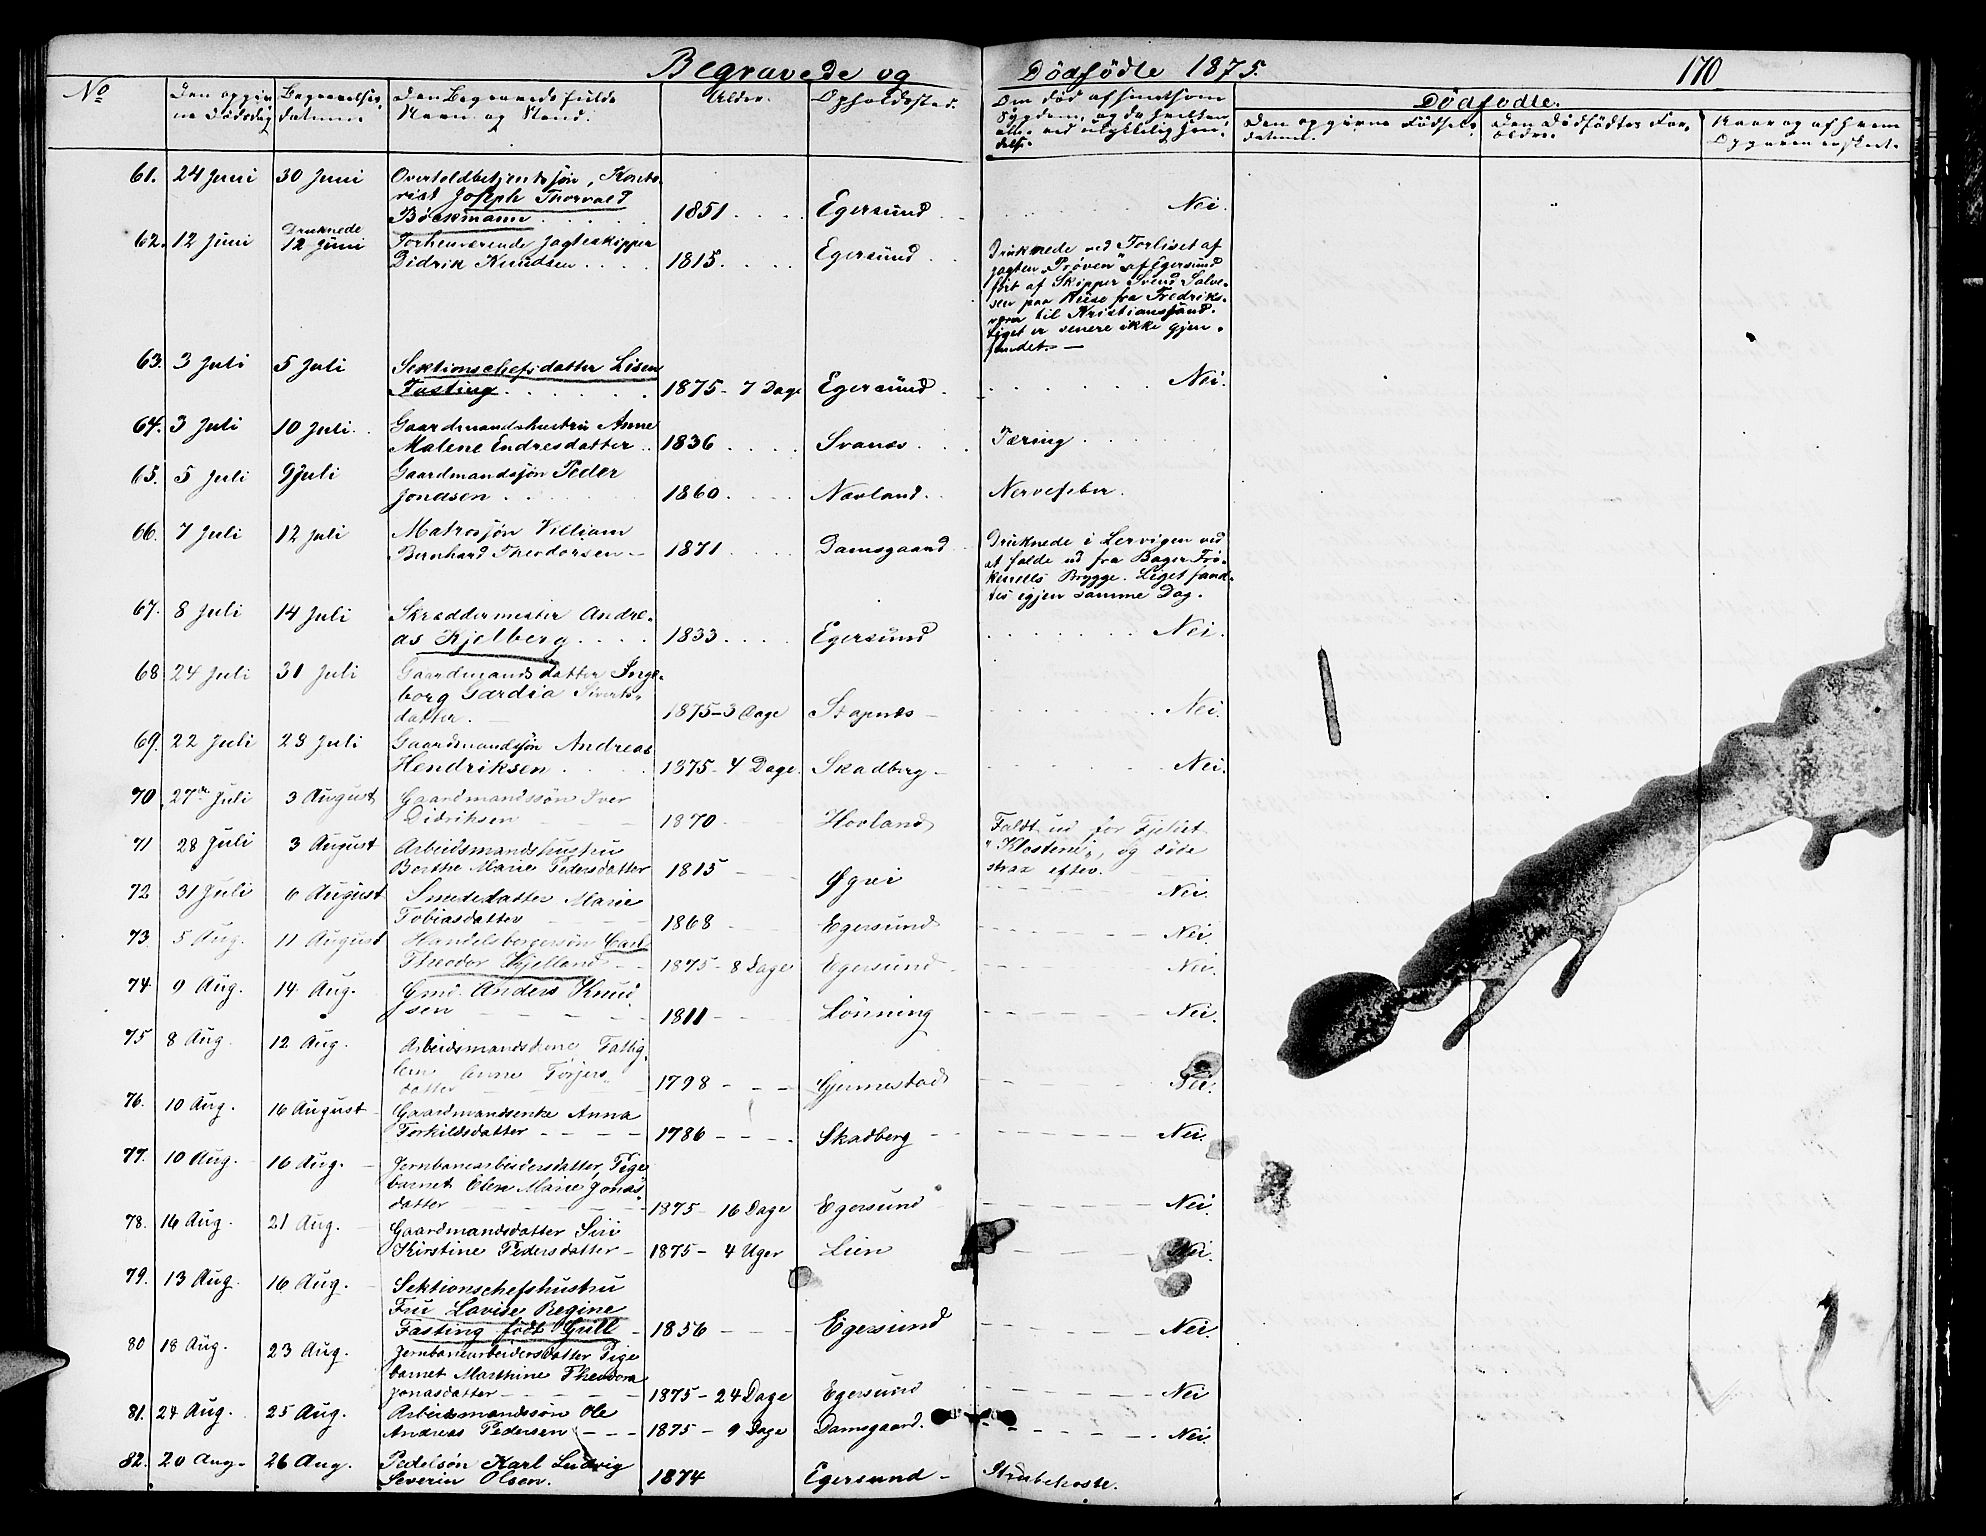 Begravede og Dødfødte 1875. 170
No
Den opgiv-
ne Dødsdag
Begravelses-
datum
Den Begravedes fulde
Navn og Stand.
Alder.
Opholdssted.
Om død af smitsom
Sygdom, og da hvilken,
ell. ved ulykkelig Hæn-
delse.
Dødfødte.
Den opgivne Fødsels-
datum.
Den Dødfødtes For-
ældre.
Naar og af hvem
Opgaven er skeet.
61. 24 Juni 30 Juni Overtoldbetjentssøn, Konto-
rist Joseph Thorvald
Bøckmann 1851 Egersund Nei.
62. 12 Juni Druknede
12 Juni Forhenværende Jagteskipper
Didrik Knudsen 1815 Egersund Druknede ved Forliset af
Jagten "Prøven" af Egersund
ført af Skipper Svend Salve-
sen paa Reise fra Fredriks-
værn til Kristianssand.
Liget er senere ikke gjen-
fundet.
63. 3 Juli 5 Juli Sektionschefsdatter Lisen
Fasting 1875 - 7 Dage Egersund Nei.
64. 3 Juli 10 Juli. Gaardmandshustru Anne
Malene Endresdatter 1836 Svanes Tæring
65. 5 Juli 9 Juli Gaardmandssøn Peder
Jonassen 1860 Navland Nervefeber.
66. 7 Juli 12 Juli Matrossøn Villiam
Bernhard Theodorsen 1871 Damsgaard Druknede i Lervigen ved
at falde ud fra Bager Frø-
Brygge. Liget fand-
tes igjen samme Dag.
67. 8 Juli 14 Juli Skreddermester Andre-
as Kjelberg 1833 Egersund Nei.
68 24 Juli 31 Juli Gaardmandsdatter Inge-
borg Gardia Siverts-
datter. 1875 - 3 Dage Stapnes Nei.
69. 22 Juli 28 Juli Gaardmandssøn Andreas
Hendriksen 1875 - 4 Dage. Skadberg Nei.
70 27de Juli 3 August Gaardmandssøn Iver
Didriksen 1870 Hovland Faldt ud for Fjeldet
71 28 Juli 3 August Arbeidsmandshustru
Berthe Marie Pedersdatter 1815 Øgrei "Klosteni", og døde
strax efter.
72 31 Juli 6 August Smededatter Marie
Tobiasdatter 1868 Egersund Nei.
Nei.
73. 5 Aug. 11 August Handelsborgersøn Carl
Theodor Kjelland 1875 - 8 Dage Egersund Nei.
74. 9 Aug. 14 Aug. Emi. Anders Knud
sen 1811 Lønning Nei.
75 8 Aug. 12 Aug. Arbeidsmandskone Fattig-
lem Anne Torjers-
datter 1798 Gjermestad Nei.
76. 10 Aug. 16 August Gaardmandsenke Anna
Torkildsdatter 1786 Skadberg Nei.
77. 10 Aug. 16 Aug. Jernbanearbeidersdatter, Pige
barnet Elen Marie Jonas-
datter 1875 - 16 Dage Egersund Nei.
78. 16 Aug. 21 Aug. Gaardmandsdatter Siri
Kirstine Pedersdatter 1875 - 4 Uger Lien Nei.
79. 13 Aug. 16 Aug. Sektionschefshustru
Fru Lovise Regine
Fasting født Grill 1856 Egersund Nei.
80 18 Aug. 23 Aug. Jernbanearbeidersdatter Pige
barnet Marthine Theodora
Jonasdatter 1875 - 24 Dage Egersund Nei
81. 24 Aug. 25 Aug. Arbeidsmandssøn Ole
Andreas Pedersen 1875 - 9 Dage Damsgaard. Nei.
82. 20 Aug. 26 Aug. Pedelsøn Karl Ludvig
Severin Olsen. 1874 Egersund Strubehoste.